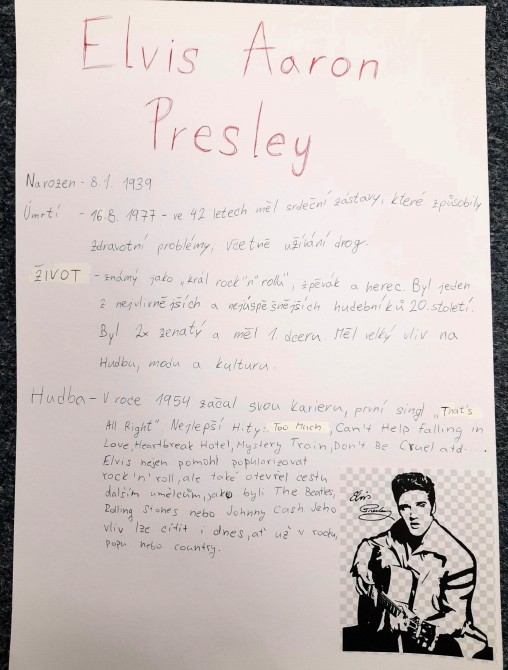 Elvis Aaron
Presley
Narozen - 8.1. 1939
Úmrtí - 16.8. 1977 - ve 42 letech měl srdeční zástavy, které způsobily
zdravotní problémy, včetně užívání drog.
ŽIVOT - známý jako „král rock"n"rollu", zpěvák a herec. Byl jeden
z nejvlivnějších a nejúspěšnějších hudebníků 20. století.
Byl 2x ženatý a měl 1. dceru. Měl velký vliv na
Hudbu, modu a kulturu.
Hudba - V roce 1954 začal svou karieru, první singl „That's
All Right" Nejlepší Hity: Too Much, Can't Help Falling in
Love, Heartbreak Hotel, Mystery Train, Don't Be Cruel atd....
Elvis nejen pomohl popularizovat
rock'n'roll, ale také otevřel cestu
dalším umělcům, jako byli The Beatles,
Rolling Stones nebo Johnny Cash Jeho
vliv lze cítit i dnes, ať už v rocku,
popu nebo country.
Elvis
Presley